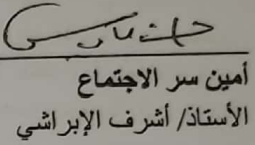 أمين سر الاجتماع
الأستاذ/ أشرف الإبراشي